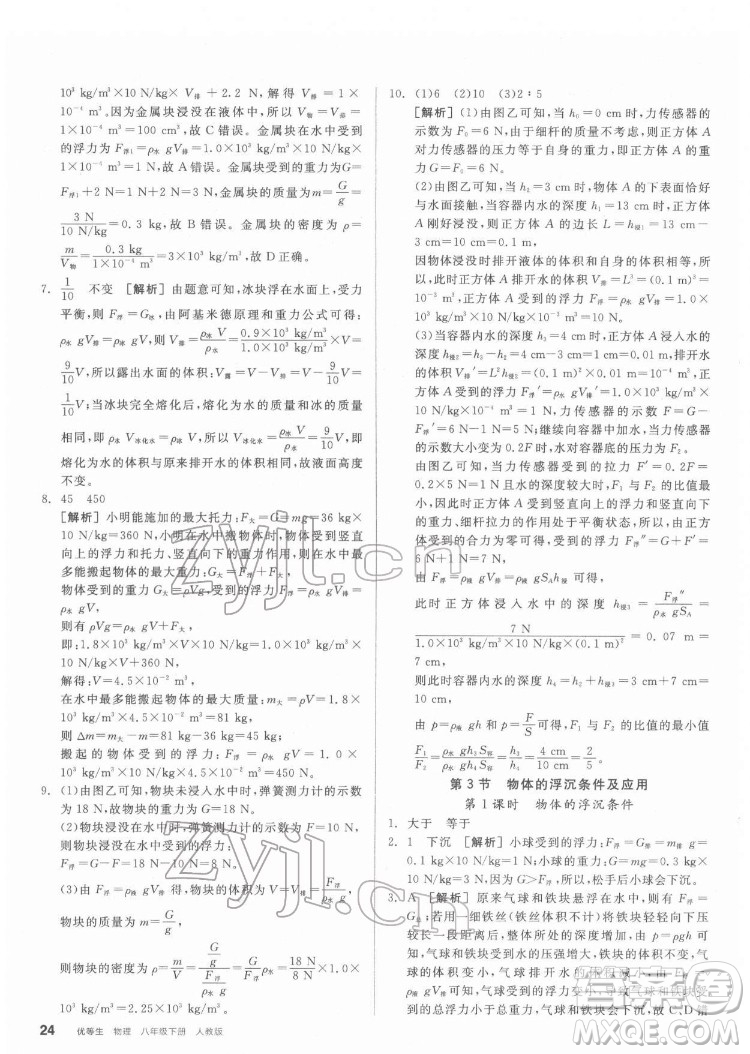 10³ kg/m³×10 N/kg×V排+2.2 N，解得V排=1×
10⁻⁴ m³=100 cm³，故C错误。金属块在水中受到
的浮力为F浮1=ρ水 gV排=1.0×10³ kg/m³×
10 N/kg×1×10⁻⁴ m³=1 N。金属块的重力为G=
F浮1+2 N=1 N+2 N=3 N。金属块的质量为m=G/g
=3 N/10 N/kg=0.3 kg，故B错误。金属块的密度为ρ=
m/V物=0.3 kg/1×10⁻⁴ m³=3×10³ kg/m³，故D正确。
7. 1/10 不变 [解析]由题意可知，冰块浮在水面上，受力
平衡，则F浮=G冰，由阿基米德原理和重力公式，得
ρ水 gV排=ρ冰 gV，则V排=ρ冰 V/ρ水=0.9×10³ kg/m³/1.0×10³ kg/m³×V=
9/10 V，所以露出水面的体积：V露=V-V排=V-
9/10 V=1/10 V；当冰块完全熔化后，熔化为水的质量和冰的质量
相同，即ρ水 V冰化水=ρ冰 V，V冰化水=ρ冰 V/ρ水=9/10 V，即
熔化为水的体积与原来排开水的体积相同，故液面高度
不变。
8. 45 450
[解析]小明能施加的最大托力：F大=G大=mg=36 kg
×10 N/kg=360 N，小明在水中搬物体时，物体受到竖
直向上的浮力和托力、竖直向下的重力，则在水中最
多能搬起物体的重力：G大=F浮+F大。
物体受到的重力：G大=ρVg，受到的浮力：F浮=
ρ水 gV，
则有ρVg=ρ水 gV+F大，
即：1.8×10³ kg/m³×V×10 N/kg=1.0×10³ kg/m³
×10 N/kg×V+360 N，
解得：V=4.5×10⁻² m³，
在水中最多能搬起物体的最大质量：m大=ρV=1.8×
10³ kg/m³×4.5×10⁻² m³=81 kg，
则Δm=m大-m=81 kg-36 kg=45 kg；
搬起的物体受到的浮力：F浮=ρ水 gV=1.0×
10³ kg/m³×10 N/kg×4.5×10⁻² m³=450 N。
9. (1)由图可知，物块未浸入水中时，弹簧测力计的示数
为18 N，则物块的重力为G=18 N。
(2)物块浸没在水中时，弹簧测力计的示数为F=
10 N，由称重法可知，物块浸没在水中时受到的浮力为
F浮=G-F=18 N-10 N=8 N。
(3)由F浮=ρ水 gV排可得，物块的体积为V=V排=F浮/ρ水 g，
物块的质量为m=G/g，
则物块的密度为ρ=m/V=G/g/F浮/ρ水 g=G/F浮 ρ水=18 N/8 N×1.0×
10³ kg/m³=2.25×10³ kg/m³。
24 优等生 物理 八年级下册 人教版
10. (1)6 (2)10 (3)2∶5
[解析](1)由图乙可知，当h₀=0 cm时，力传感器的
示数为F₀=6 N，由于细杆的质量不考虑，则正方体A
对力传感器的压力等于自身的重力，即正方体A受到
的重力G=F₀=6 N。
(2)由图乙可知，当h=3 cm时，物体A的下表面恰好
与水面接触，当容器内水的深度h₁=13 cm时，正方体
A刚好浸没，则正方体A的边长L=h₁-h=13 cm-
3 cm=10 cm=0.1 m，
因物体浸没时排开液体的体积和自身的体积相等，所
以，此时正方体A排开水的体积V排=L³=(0.1 m)³=
10⁻³ m³，正方体A受到的浮力F浮=ρ水 gV排=
1.0×10³ kg/m³×10 N/kg×10⁻³ m³=10 N。
(3)当容器内水的深度h₂=4 cm时，正方体A浸入水
的深度h浸2=h₂-h=4 cm-3 cm=1 cm=0.01 m，排开水
的体积V'排=L²h浸2=(0.1 m)²×0.01 m=10⁻⁴ m³，
正方体A受到的浮力F'浮=ρ水 gV'排=1.0×
10³ kg/m³×10 N/kg×10⁻⁴ m³=1 N，
由图乙可知，力传感器的示数F=G-F'浮
=6 N-1 N=5 N；继续向容器中加水，当力传感器
的示数大小变为0.2F时，水对容器底的压力为F₂。
由图乙可知，力传感器受到的拉力F'=0.2F=
0.2×5 N=1 N时水的深度较大，
由正方体A受到竖直向上的浮力和竖直向下的
重力、细杆拉力的作用处于平衡状态，所以，由正方体
A受到的合力为零可得，受到的浮力F″浮=G+F'=
6 N+1 N=7 N，
由F浮=ρ水 gV排可得，
此时正方体浸入水中的深度h浸3=F浮″/ρ水 gSA=
7 N/1.0×10³ kg/m³×10 N/kg×(0.1 m)²=0.07 m=
7 cm，
则此时容器内水的深度h₃=h浸3+h=7 cm+3 cm=
10 cm，
由p=ρ液 gh和p=F/S可得，F₁与F₂的比值的最小值
F₁/F₂=ρ水 gh₂S容/ρ水 gh₃S容=h₂/h₃=4 cm/10 cm=2/5。
第3节 物体的浮沉条件及应用
第1课时 物体的浮沉条件
1. 大于 等于
2. 1 下沉 [解析]小球受到的浮力：F浮=G排=mg=
0.1 kg×10 N/kg=1 N，
因为G>F浮，所以，松手后小球会下沉。
3. A [解析]原来气球和铁块悬浮在水中，所以F浮=
G总；若用一细铁丝(铁丝体积不计)将铁块轻轻向下压
较小一段距离，整体所处的深度增大，由p=ρgh可
知，气球和铁块受到水的压强增大，体积变小(铁块
的体积变化很小，气球的体积变小)，由F浮=ρ水 gV排
可知，气球体积变小使得排开水的体积变小，导致气球和铁块受到
的总浮力变小，浮力将小于总重力，所以会下沉，故C、D错